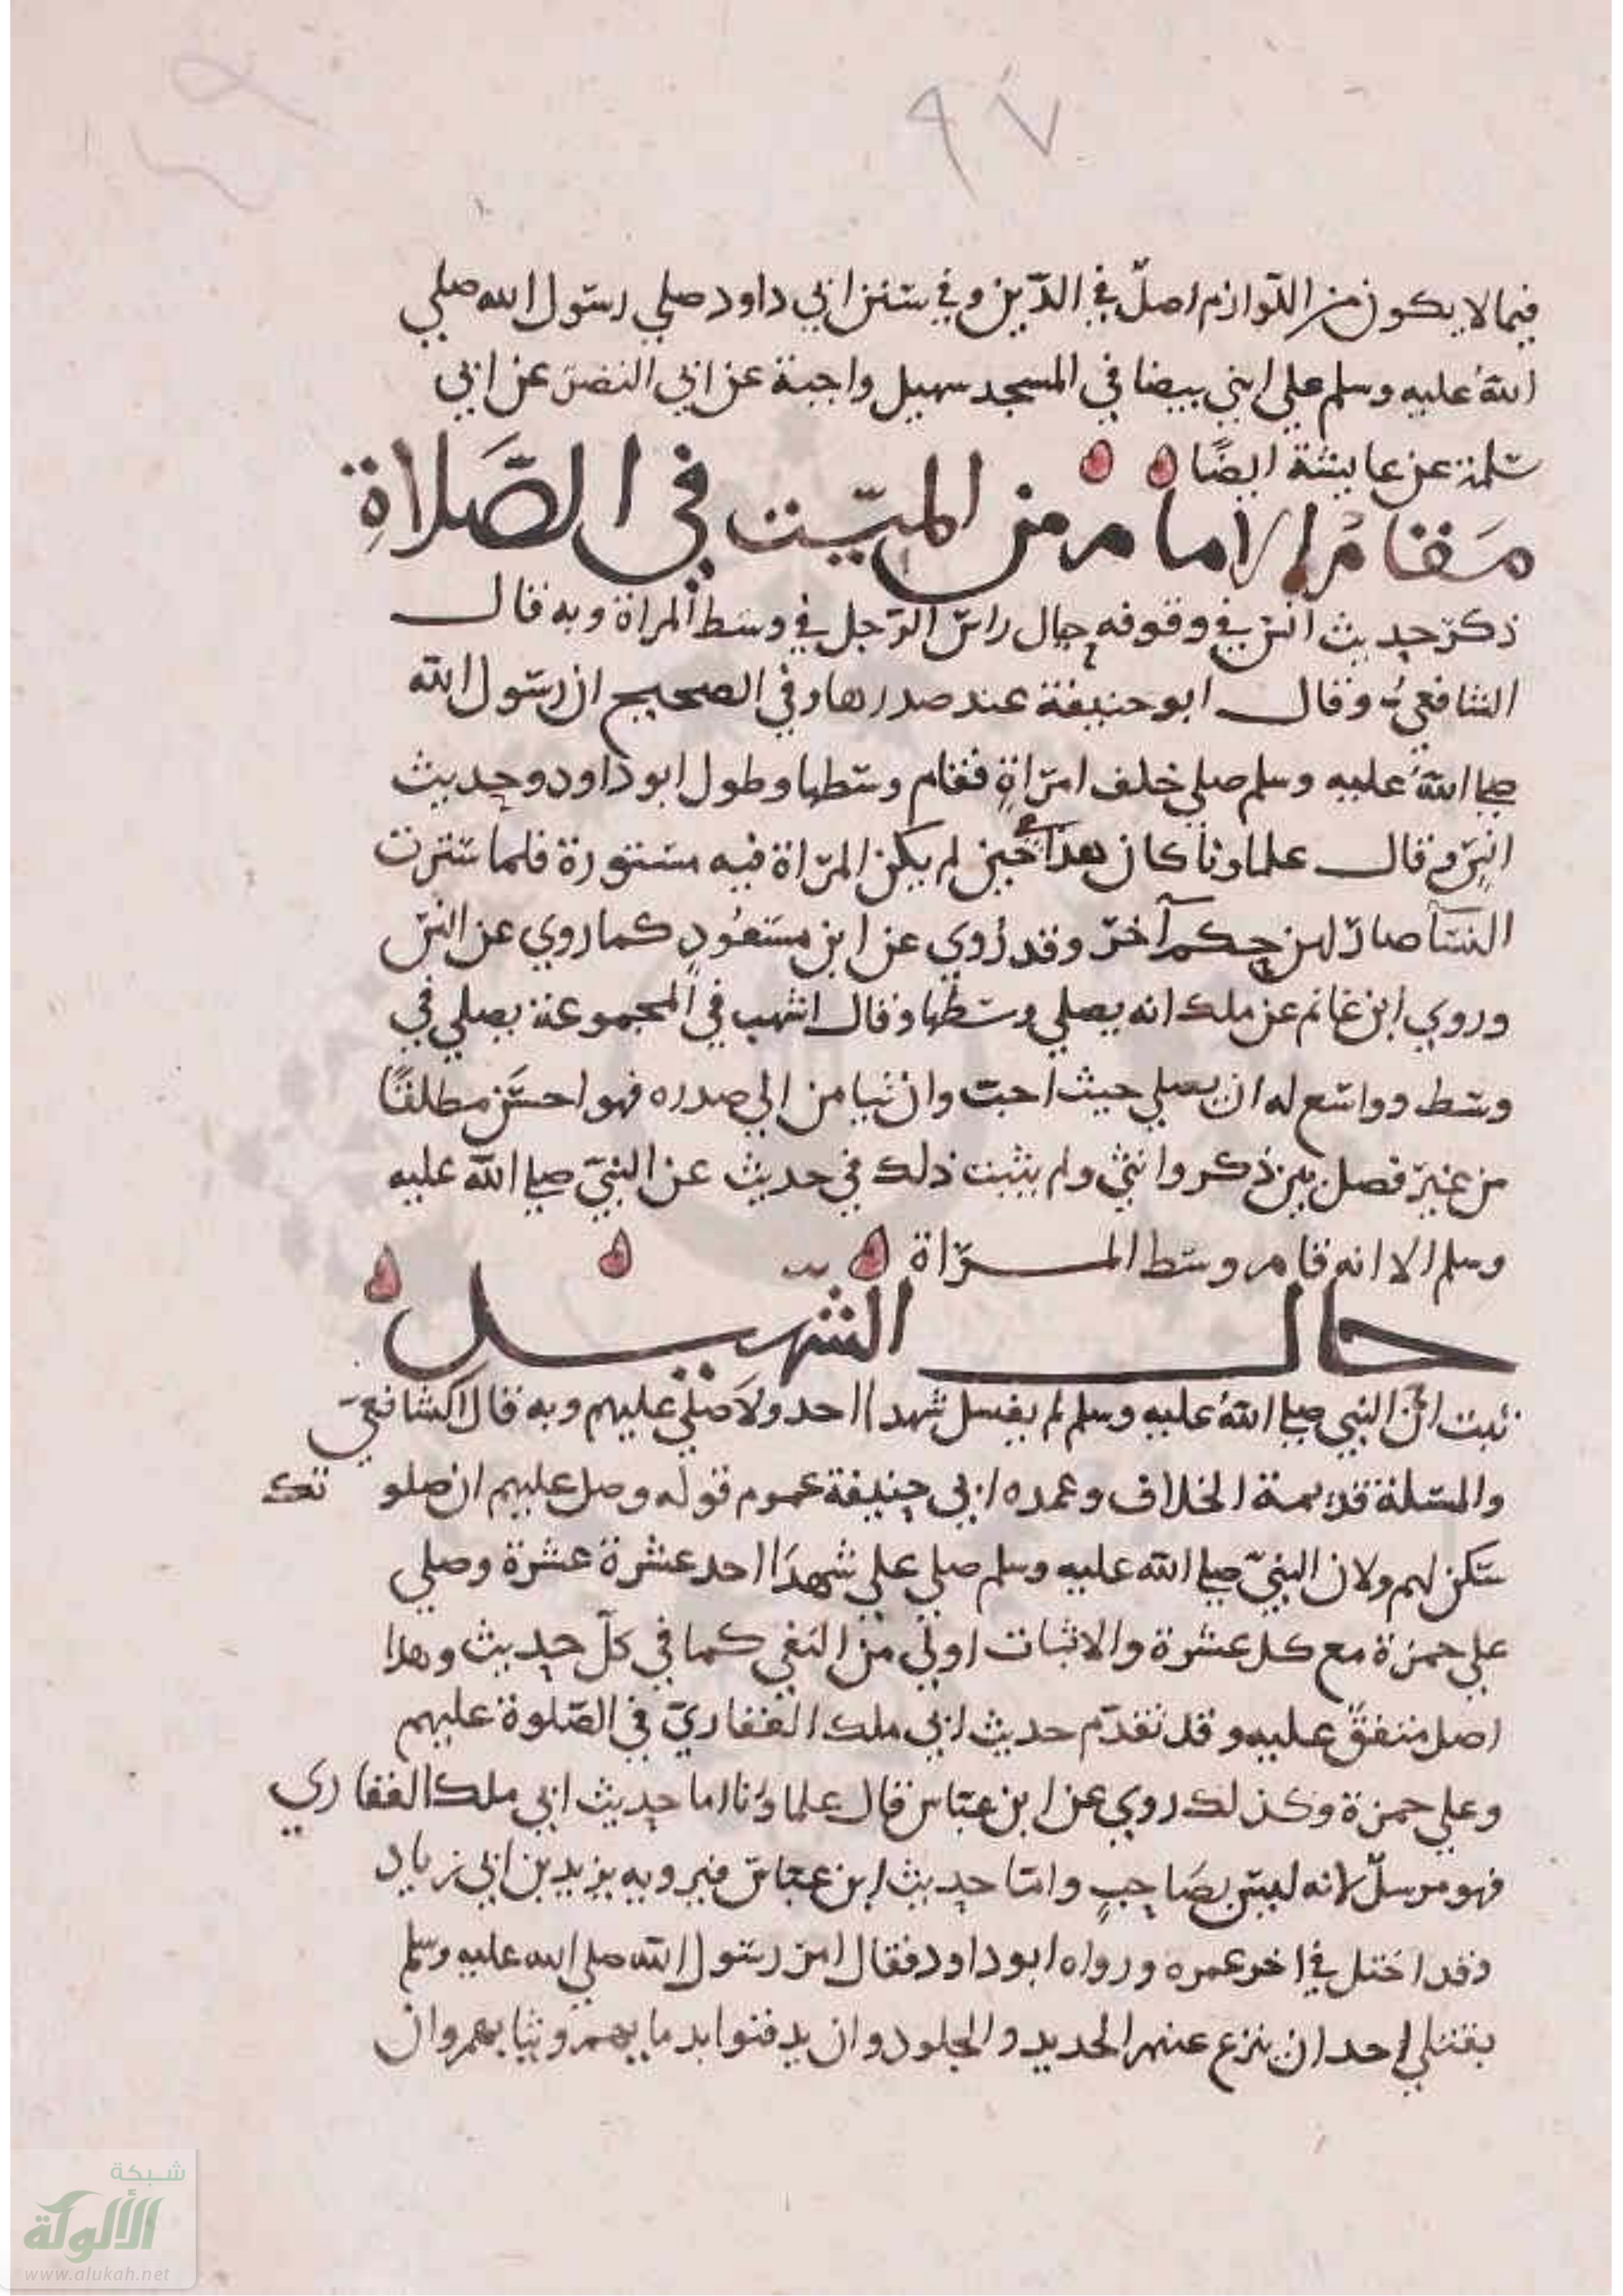 ٩٧
فيما لا يكون من اللوازم اصلّ في الدّين وفي سنن ابي داود صلي رسول الله صلي
اللهُ عليه وسلم علي ابني بيضا في المسجد سهيل واجبة عن ابي النضر عن ابي
سلمة عن عايشة ايضًا
مَقامُ الامام من الميّت في الصَّلاةِ
ذكر حديث انس في وقوفه حيال راس الرّجل في وسط المراة وبه قال
الشافعي وقال ابو حنيفة عند صدرها وفي الصحيح ان رسول الله
صلى اللهُ عليه وسلم صلي خلف امراةٍ فقام وسطها وطول ابو داود وحديث
انس وقال علماونا كان هذا حين لم يكن المراة فيه مستورة فلما سترت
النسآ صار لهن حكم آخر وقد رُوي عن ابن مسعُودٍ كما روي عن انس
وروي ابن غانم عن ملك انه يصلي وسطها وقال اشهب في المجموعة يصلي في
وسط وواسع له ان يصلي حيث احب وان تيامن الي صدره فهو احسَن مطلقًا
من غير فصل بين ذكر وانثي ولم يثبت ذلك في حديث عن النبيّ صلى اللهُ عليه
وسلم الا انه قام وسط المراة
حال الشهيد
ثبت انّ النبي صلى اللهُ عليه وسلم لم يغسل شهدا احد ولا صلي عليهم وبه قال الشافعيّ
والمسلة قديمة الخلاف وعمده ابي حنيفة عموم قوله وصل عليهم ان صلو تك
سكن لهم ولان النبيّ صلى الله عليه وسلم صلي علي شهدَا احد عشرة عشرة وصلي
علي حمزة مع كل عشرة والاثبات اولي من النفي كما في كلّ حديث وهذا
اصل متفقٌ عليه وقد تقدّم حديث ابي ملك الغفاريّ في الصّلوة عليهم
وعلي حمزة وكذلك روي عن ابن عبّاس قال علماؤنا اما حديث ابي ملك الغفاري
فهو مرسلٌ لانه ليس بصَاحبٍ وامّا حديث ابن عبّاس فيرويه يزيد بن ابي زياد
وقد اختل في اخر عمره ورواه ابو داود فقال امر رسول الله صلي الله عليه وسلم
بقتلي احد ان ينزع عنهم الحديد والجلود وان يدفنوا بدمايهم وثيابهم وان
شبكة
الألوكة
www.alukah.net